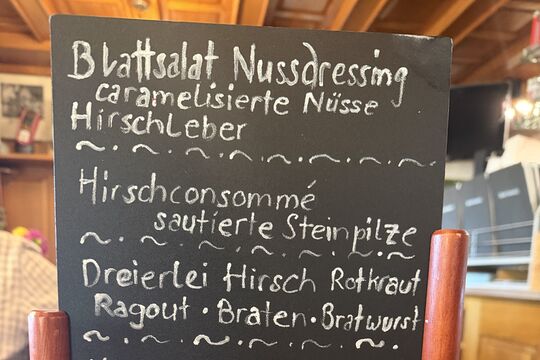 Blattsalat Nussdressing
caramelisierte Nüsse
Hirschleber
~ . ~ . ~ . ~ . ~ . ~ . ~
Hirschconsommé
sautierte Steinpilze
~ . ~ . ~ . ~ . ~ . ~
Dreierlei Hirsch Rotkraut
Ragout • Braten • Bratwurst
~ . ~ . ~ . ~ . ~ . ~ . ~